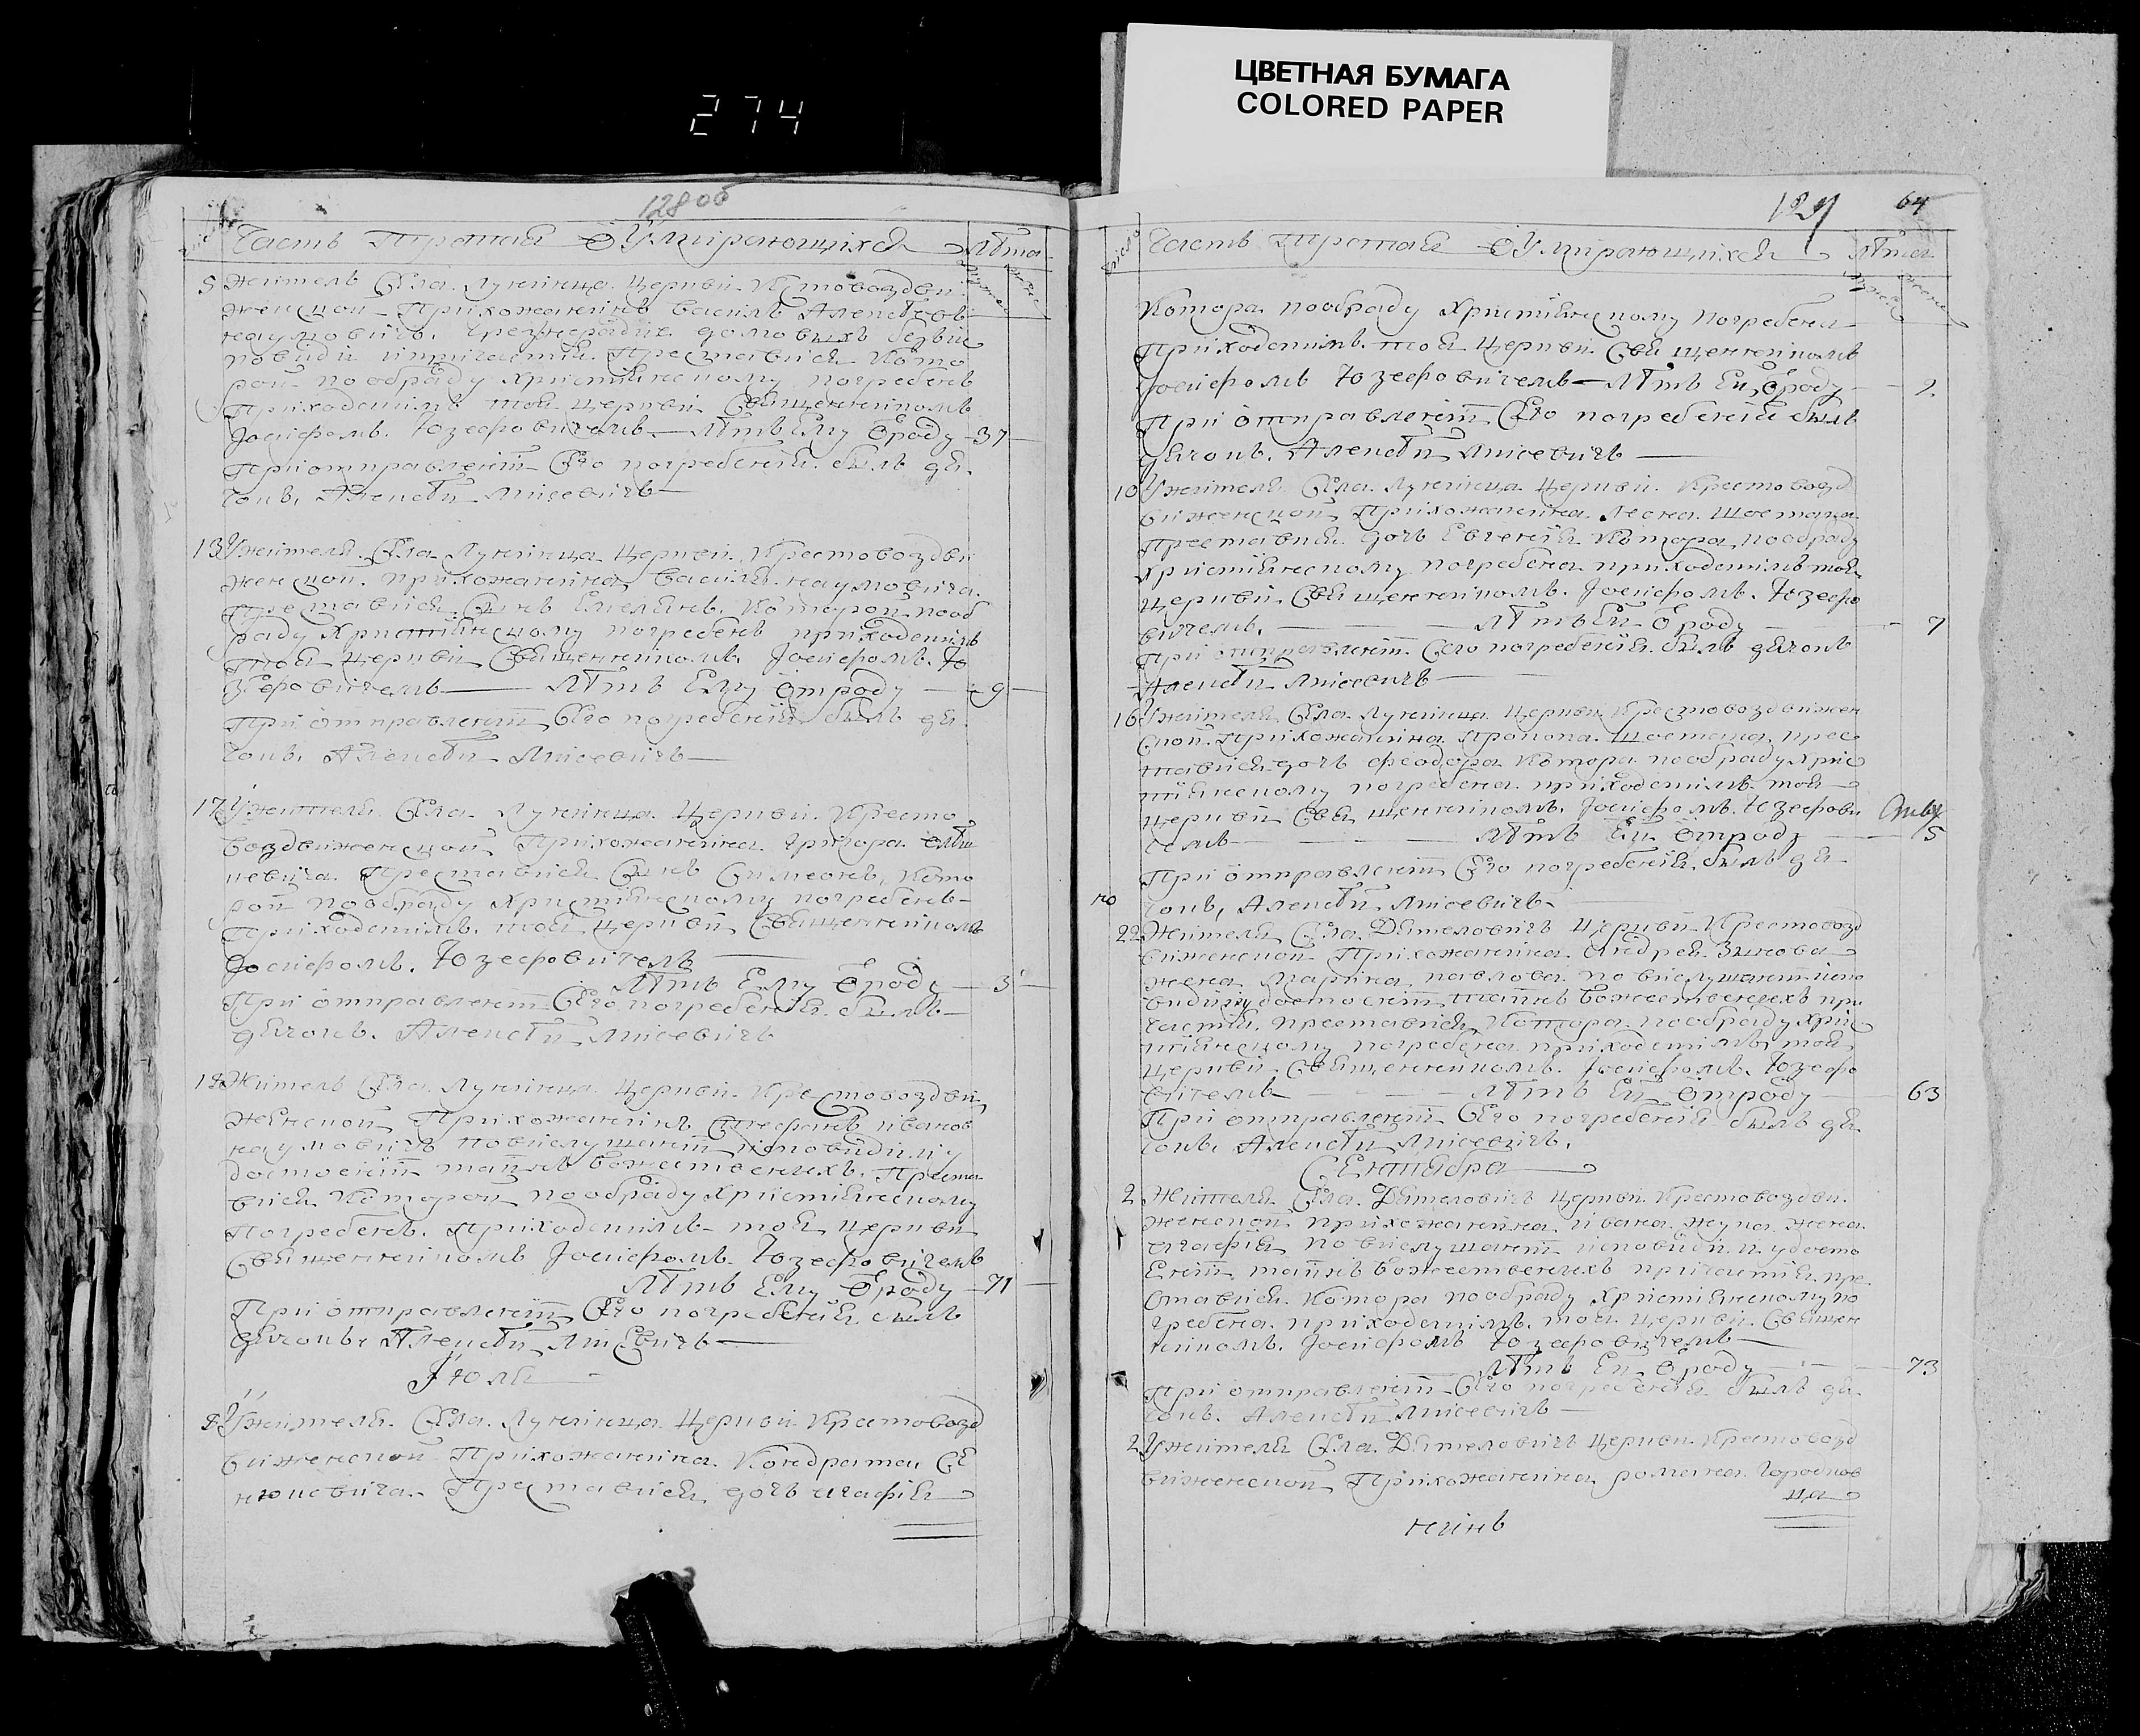 ЦВЕТНАЯ БУМАГА
COLORED PAPER
274
128 об
Часть Третая О Умирающихся Лѣта
5 Житель Села Лунинца Церкви Кстовоздви
женской Прихожанинъ Василь Алексѣевъ
наумовичъ
Которой пообраду християнскому погребенъ
Приходскимъ тоя церкви Священникомъ
Iосифомъ Юзефовичемъ Лѣтъ Ему Ѿроду 37
При отправленіи Сего погребения былъ дя
чокъ Алексѣй Лисевичъ
13 У жителя Села Лунинца Церкви Крестовоздви
женской прихожанина Василя наумовича
Преставися Сынъ Емелянъ Которой пооб
раду Християнскому погребенъ приходскимъ
тоя церкви Священникомъ Iосифомъ Ю
зефовичемъ Лѣтъ Ему Ѿтроду 9
При отправленіи Сего погребения былъ дя
чокъ Алексѣй Лисевичъ
17 У жителя Села Лунинца Церкви Кресто
воздвиженской Прихожанина Григора
Преставися Сынъ Симеонъ Кото
рой пообраду Християнскому погребенъ
Приходскимъ тоя Церкви Священникомъ
Iосифомъ Юзефовичемъ
Лѣтъ Ему Ѿроду 3
При отправленіи Сего погребения былъ
дячокъ Алексѣй Лисевичъ
Житель Села Лунинца Церкви Крестовоздви
женской Прихожанинъ Стефанъ Ивановъ
наумовичъ по вислушаніи исповѣди и у
достоеніи таинъ Божественнихъ Преста
вися Которой пообраду Християнскому
Погребенъ Приходскимъ тоя церкви
Священникомъ Iосифомъ Юзефовичемъ
Лѣтъ Ему Ѿроду 71
При отправленіи Сего погребения былъ
дячокъ Алексѣй Лисевичъ
Iюля
8 У жителя Села Лунинца Церкви Крестовозд
виженской Прихожанина Кондрата Се
нюковича Преставися дочь агафия
129 64
Число Часть Третая О Умирающихся Лѣта
Котора пообраду Християнскому погребена
Приходскимъ тоя Церкви Священникомъ
Iосифомъ Юзефовичемъ Лѣтъ Ей Ѿроду
При отправленіи Сего погребения былъ
дячокъ Алексѣй Лисевичъ
10 У жителя Села Лунинца Церкви Крестовозд
виженской Прихожанина Леона Шостака
Преставися дочь Евгения Котора пообраду
Християнскому погребена приходскимъ тоя
церкви Священникомъ Iосифомъ Юзефо
вичемъ Лѣтъ Ей Ѿроду 7
При отправленіи Сего погребения былъ дячокъ
Алексѣй Лисевичъ
16 У жителя Села Лунинца Церкви Крестовоздвижен
ской Прихожанина Прокопа Шостака прес
тавися дочь феодора Котора пообраду Хрис
тиянскому погребена приходскимъ тоя
церкви Священникомъ Iосифомъ Юзефови
чемъ Лѣтъ Ей Ѿтроду 5
При отправленіи Сего погребения былъ дя
чокъ Алексѣй Лисевичъ
22 Жителя Села Дятеловичъ Церкви Крестовозд
виженской Прихожанина Андрея Зинкова
жена Марина павлова по вислушаніи испо
види и удостоеніи таинъ Божественнихъ при
частия преставися Котора пообраду Хри
тиянскому погребена приходскимъ тоя
церкви Священникомъ Iосифомъ Юзефо
вичемъ Лѣтъ Ей Ѿтроду 63
При отправленіи Сего погребения былъ дя
чокъ Алексѣй Лисевичъ
Сентября
2 Жителя Села Дятеловичъ Церкви Крестовоздви
женской прихожанина Ивана жука жена
агафия по вислушаніи исповѣди и удосто
еніи таинъ божественнихъ причастия пре
ставися Котора пообраду Християнскому по
гребена приходскимъ тоя церкви Священ
никомъ Iосифомъ Юзефовичемъ
Лѣтъ Ей Ѿроду 73
При отправленіи Сего погребения былъ дя
чокъ Алексѣй Лисевичъ
2 У жителя Села Дятеловичъ Церкви Крестовозд
виженской Прихожанина романа